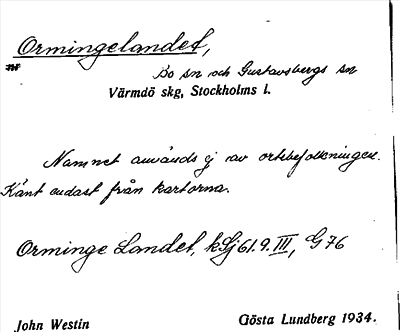 Ormingelandet,
Bo sn och Gustavsbergs sn
Värmdö skg, Stockholms l.
Namnet används ej av ortsbefolkningen.
Känt endast från kartorna.
Orminge Landet, kSj 61.9.III, G 76
John Westin
Gösta Lundberg 1934.